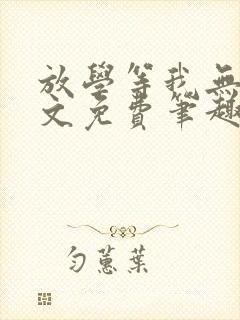 放學等我無
文免費筆趣
勻蕙葉